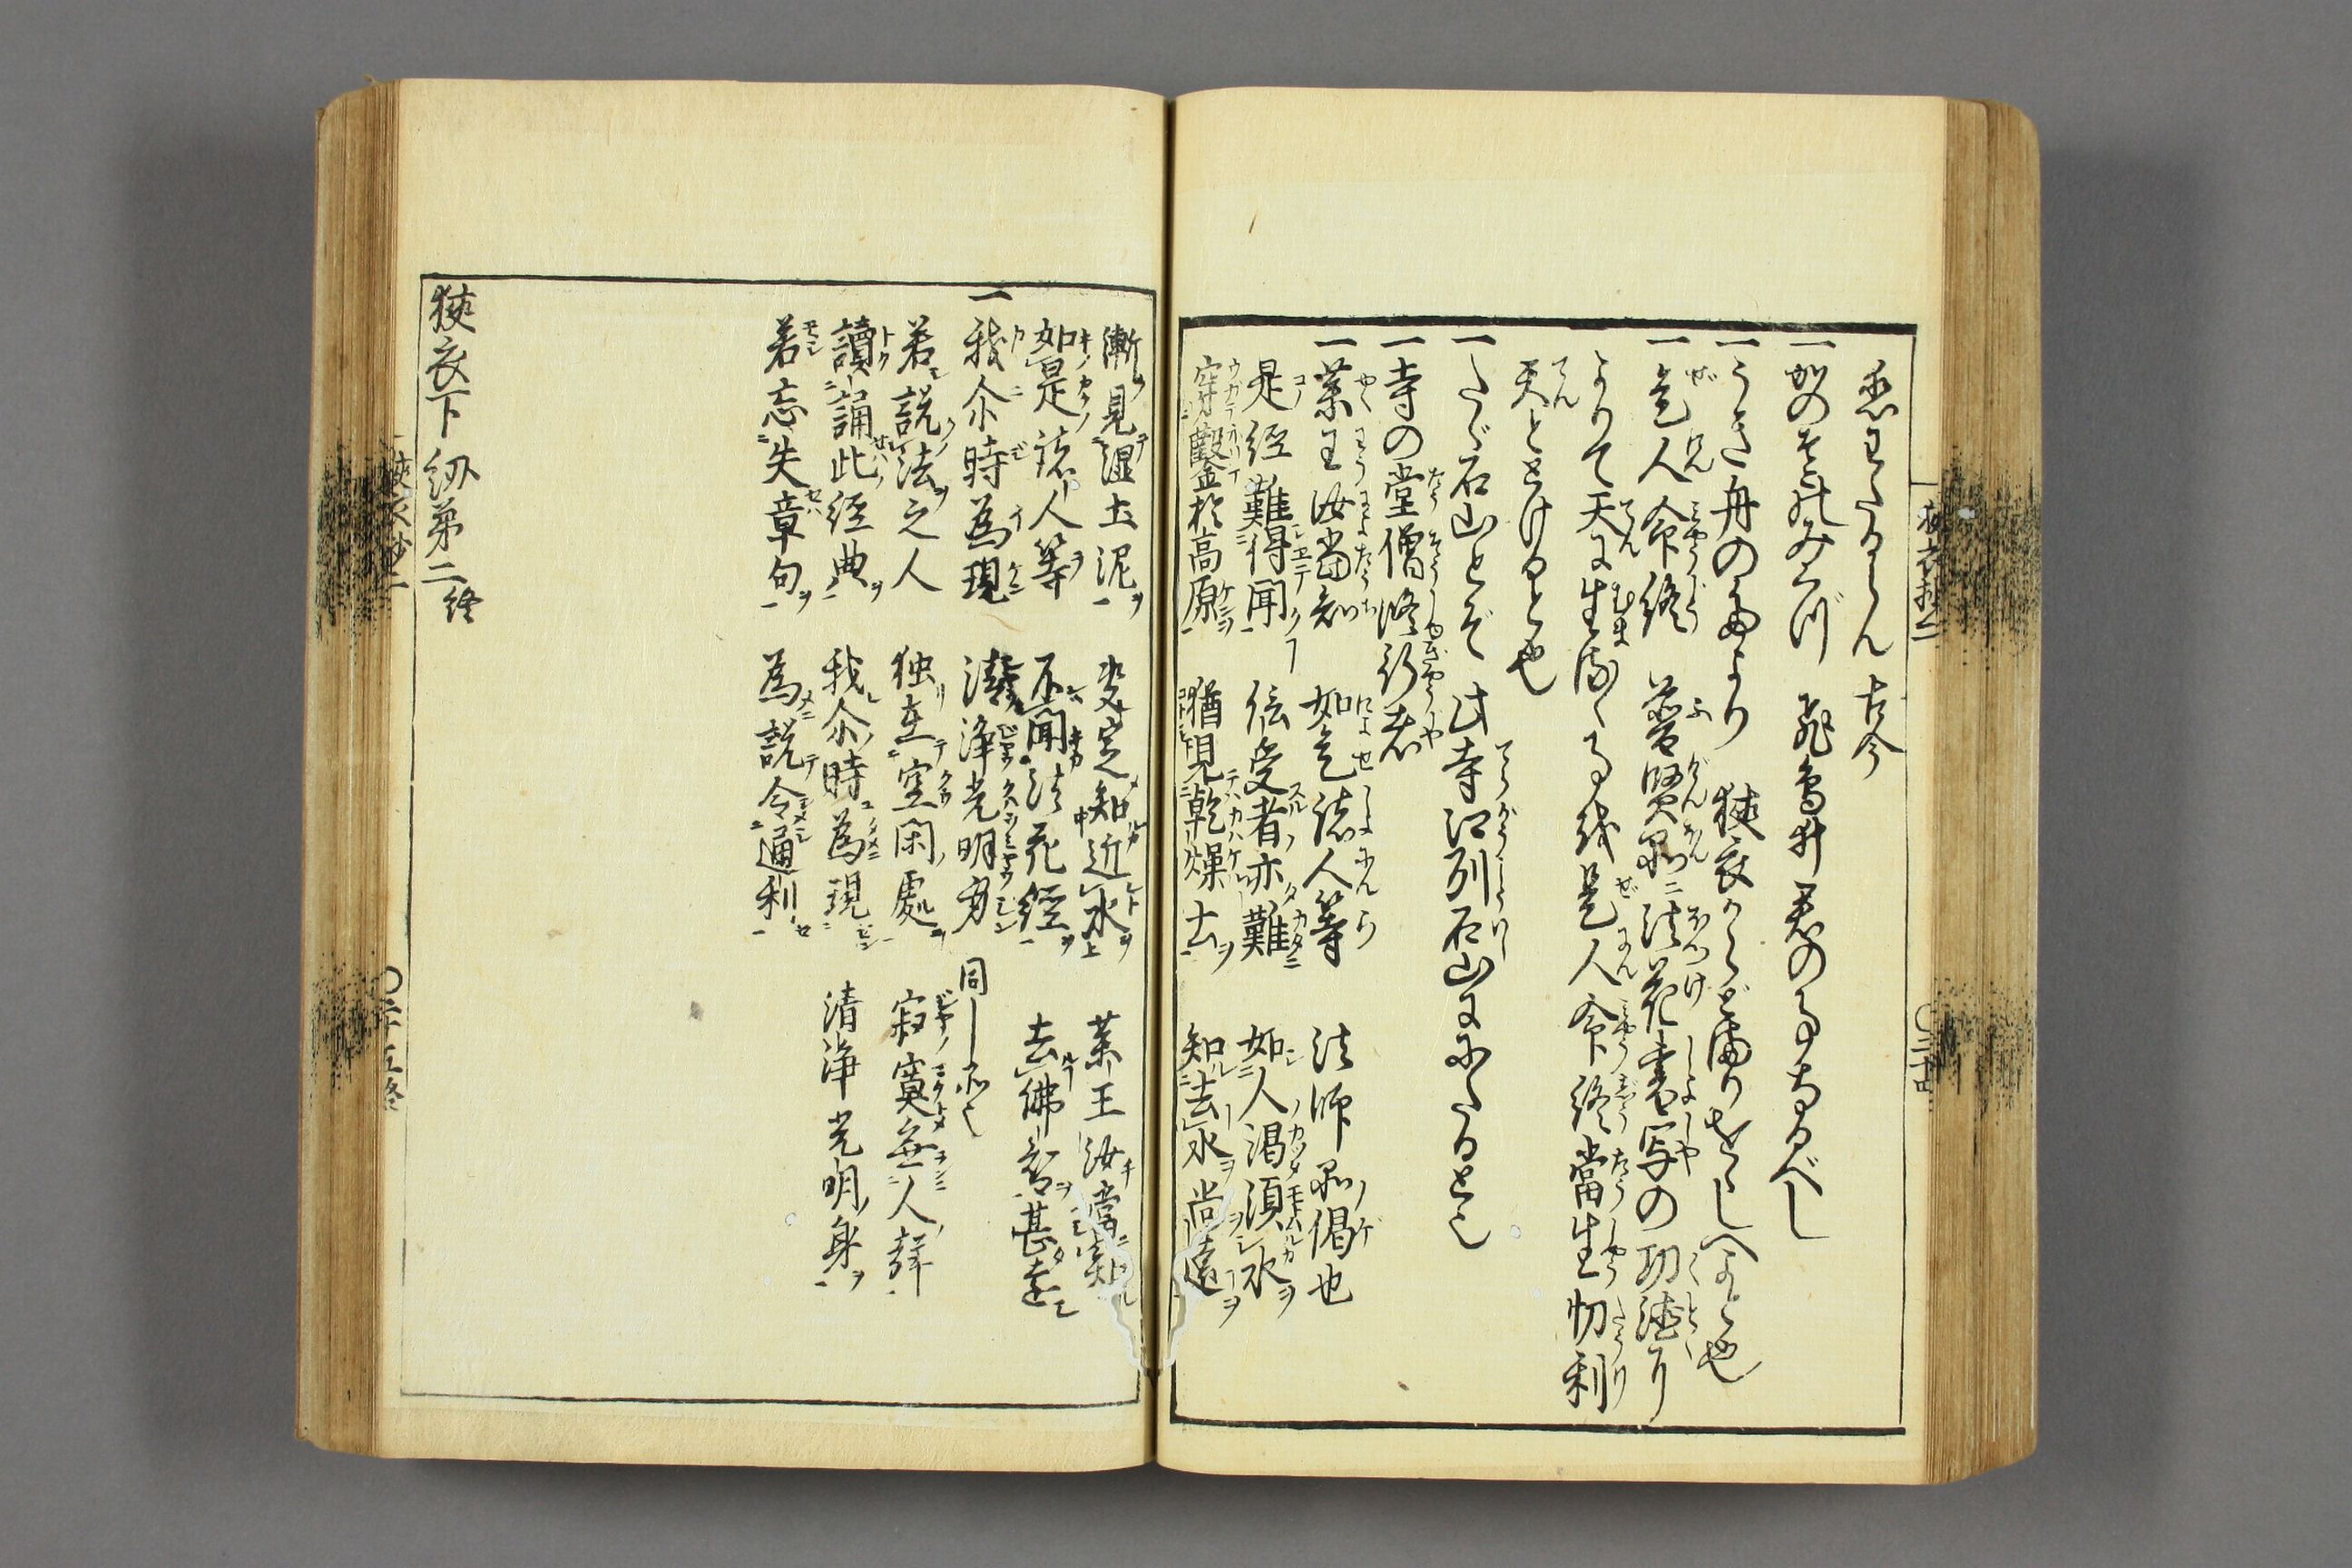 恋わたるらん 古今
一 かのそこのみくづ 飛鳥井君の事なるべし
一 うき舟のたより 狭衣からどまりをうしへよと也
一 是人命終 普賢品ニ法花書写の功徳ノ
よりて天に生ずべき事を是人命終當生忉利
天ととけると也
一 たゞ石山とぞ 此寺江州石山にわたると也
一 寺の堂僧修行者
一 薬王汝當知 如是諸人等 法師品ノ偈也
是経難得聞 信受者亦難 如人渇須水
穿鑿於高原 猶見乾燥土 知去水尚遠
漸見湿土泥 决定知近水 薬王汝當知
如是諸人等 不聞法花経 去佛智甚遠
一 我尒時為現 清浄光明身 同し品也
若説法之人 独在空閑處 寂寞無人聲
讀誦此経典 我尒時為現 清浄光明身
若忘失章句 為説令通利
狭衣下紐第二終